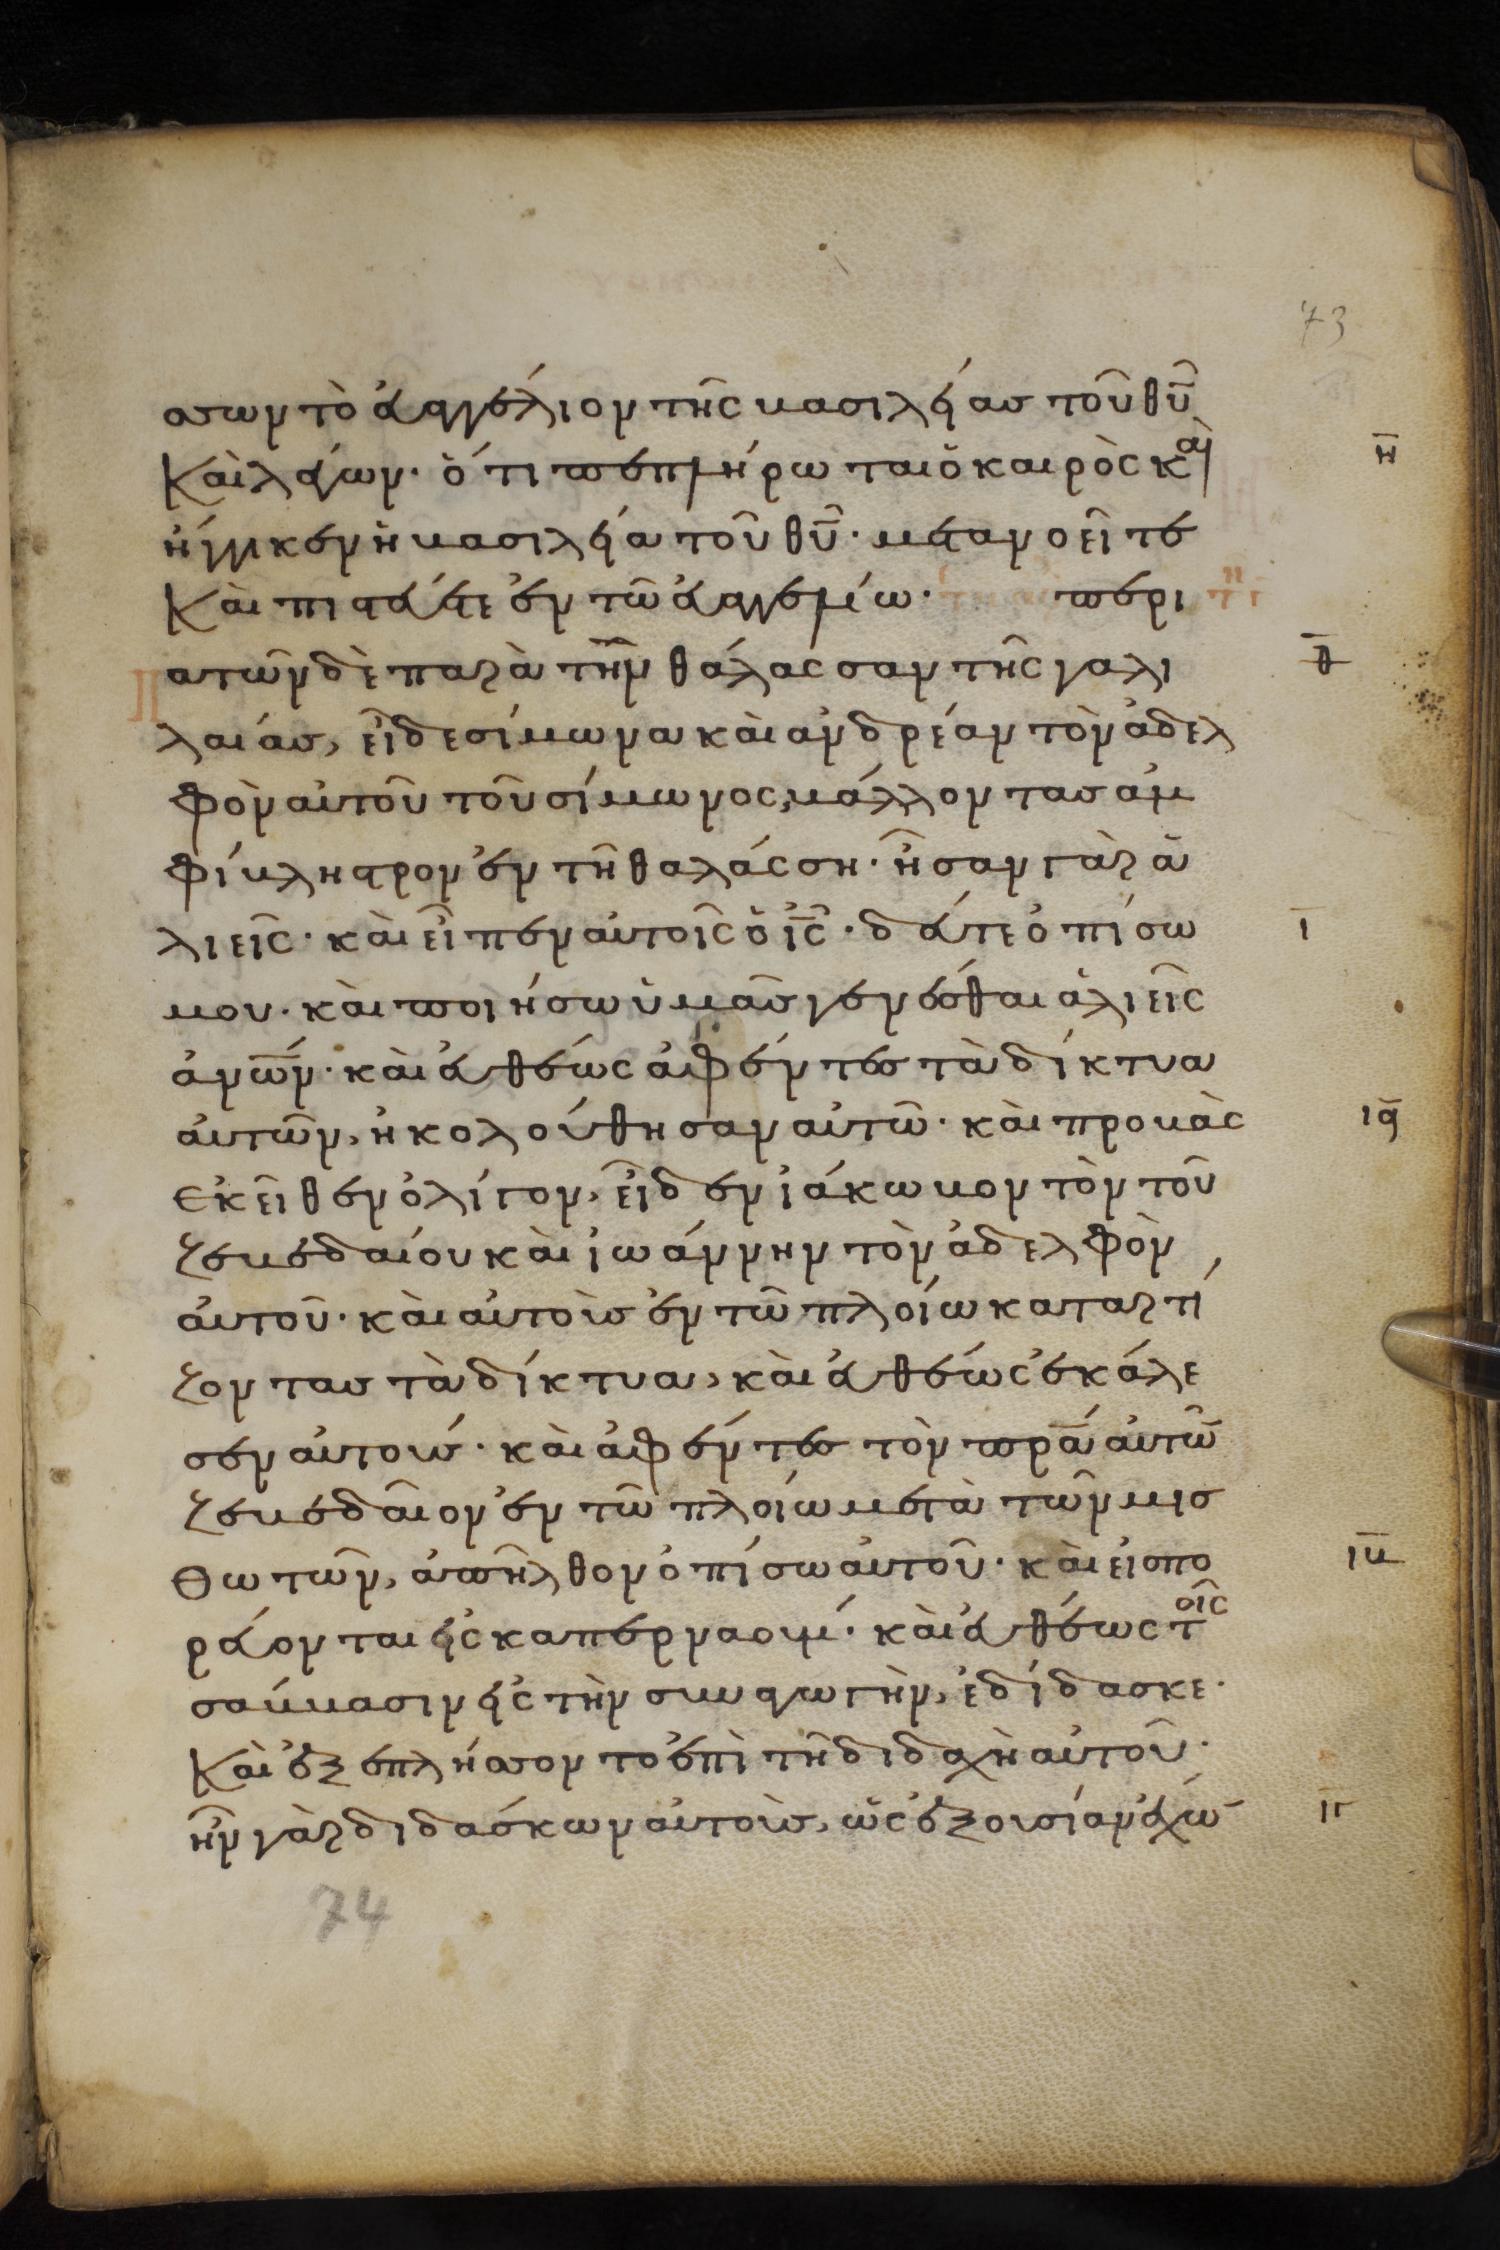 73
σσων τὸ εὐαγγέλιον τῆς βασιλείας τοῦ θῦ
Καὶ λέγων· ὅτι πεπλήρωται ὁ καιρὸς καὶ
η
ἤγγικεν ἡ βασιλεία τοῦ θῦ· μετανοεῖτε
Καὶ πιστεύετε ἐν τῶ εὐαγγελίω· περι
πατῶν δὲ παρὰ τὴν θάλασσαν τῆς γαλι
θ
λαίας, εἶδε σίμωνα καὶ ἀνδρέαν τὸν ἀδελ
φὸν αὐτοῦ τοῦ σίμωνος, βάλλοντας ἀμ
φίβληστρον ἐν τῆ θαλάσση· ἦσαν γὰρ ἁ
λιεῖς· καὶ εἶπεν αὐτοῖς ὁ ἰς· δεῦτε ὀπίσω
ι
μου· καὶ ποιήσω ὑμᾶς γενέσθαι ἁλιεῖς
ἀνων· καὶ εὐθέως ἀφέντες τὰ δίκτυα
αὐτῶν, ἠκολούθησαν αὐτῶ· καὶ προβὰς
ια
ἐκεῖθεν ὀλίγον, εἶδεν ἰάκωβον τὸν τοῦ
ζεβεδαίου καὶ ἰωάννην τὸν ἀδελφὸν
αὐτοῦ· καὶ αὐτοὺς ἐν τῶ πλοίω καταρτί
ζοντας τὰ δίκτυα, καὶ εὐθέως ἐκάλε
σεν αὐτούς· καὶ ἀφέντες τὸν πρα αὐτῶ
ζεβεδαῖον ἐν τῶ πλοίω μετὰ τῶν μισ
θωτῶν, ἀπῆλθον ὀπίσω αὐτοῦ· καὶ εἰσπο
ιβ
ρεύονται εἰς καπερναούμ· καὶ εὐθέως τοῖς
σάββασιν εἰς τὴν συναγωγὴν, ἐδίδασκε·
Καὶ ἐξεπλήσσοντο ἐπὶ τῆ διδαχῆ αὐτοῦ·
ἦν γὰρ διδάσκων αὐτοὺς, ὡς ἐξουσίαν ἔχω
ιγ
74